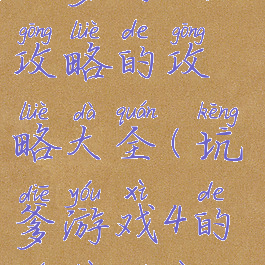 gōng lüè de gōng
攻略的攻
lüè dà quán kēng
略大全(坑
diē yóu xì de
爹游戏4的